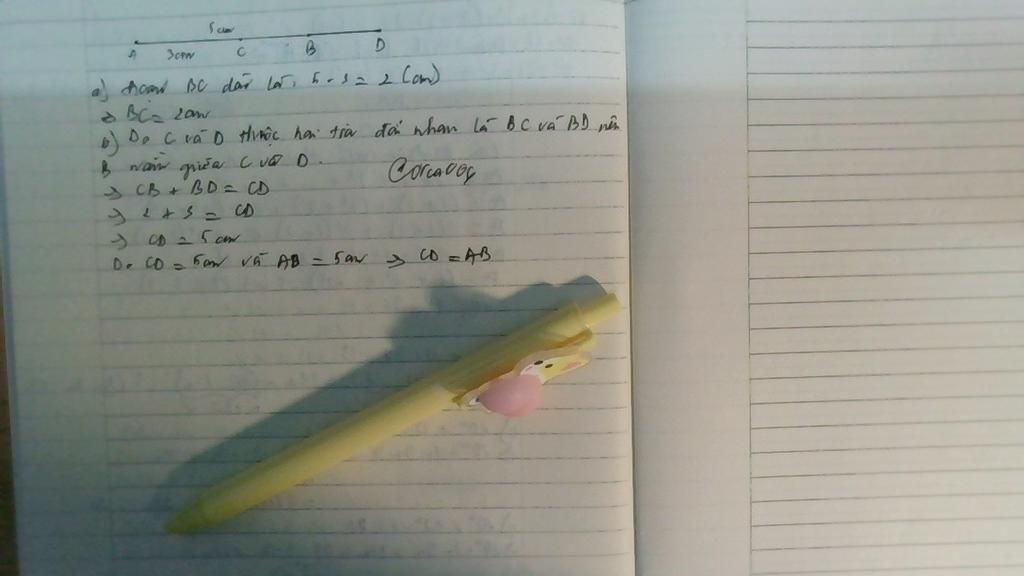 5cm
A 3cm C B D
a) Đoạn BC dài là: 5 - 3 = 2 (cm)
=> BC = 2cm
b) Do C và D thuộc hai tia đối nhau là BC và BD nên
B nằm giữa C và D.
@orca00g
=> CB + BD = CD
=> 2 + 3 = CD
=> CD = 5cm
Do CD = 5cm và AB = 5cm => CD = AB